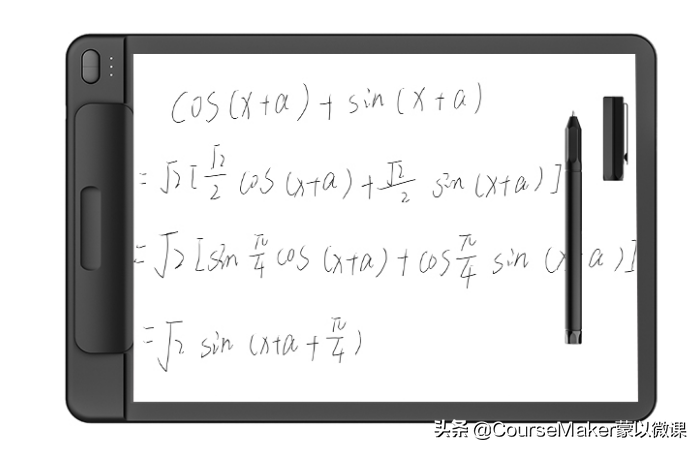 cos(x+a)+sin(x+a)
=√2[√2/2 cos(x+a)+√2/2 sin(x+a)]
=√2[sin π/4 cos(x+a)+cos π/4 sin(x+a)]
=√2 sin(x+a+π/4)
头条 @CourseMaker蒙以微课